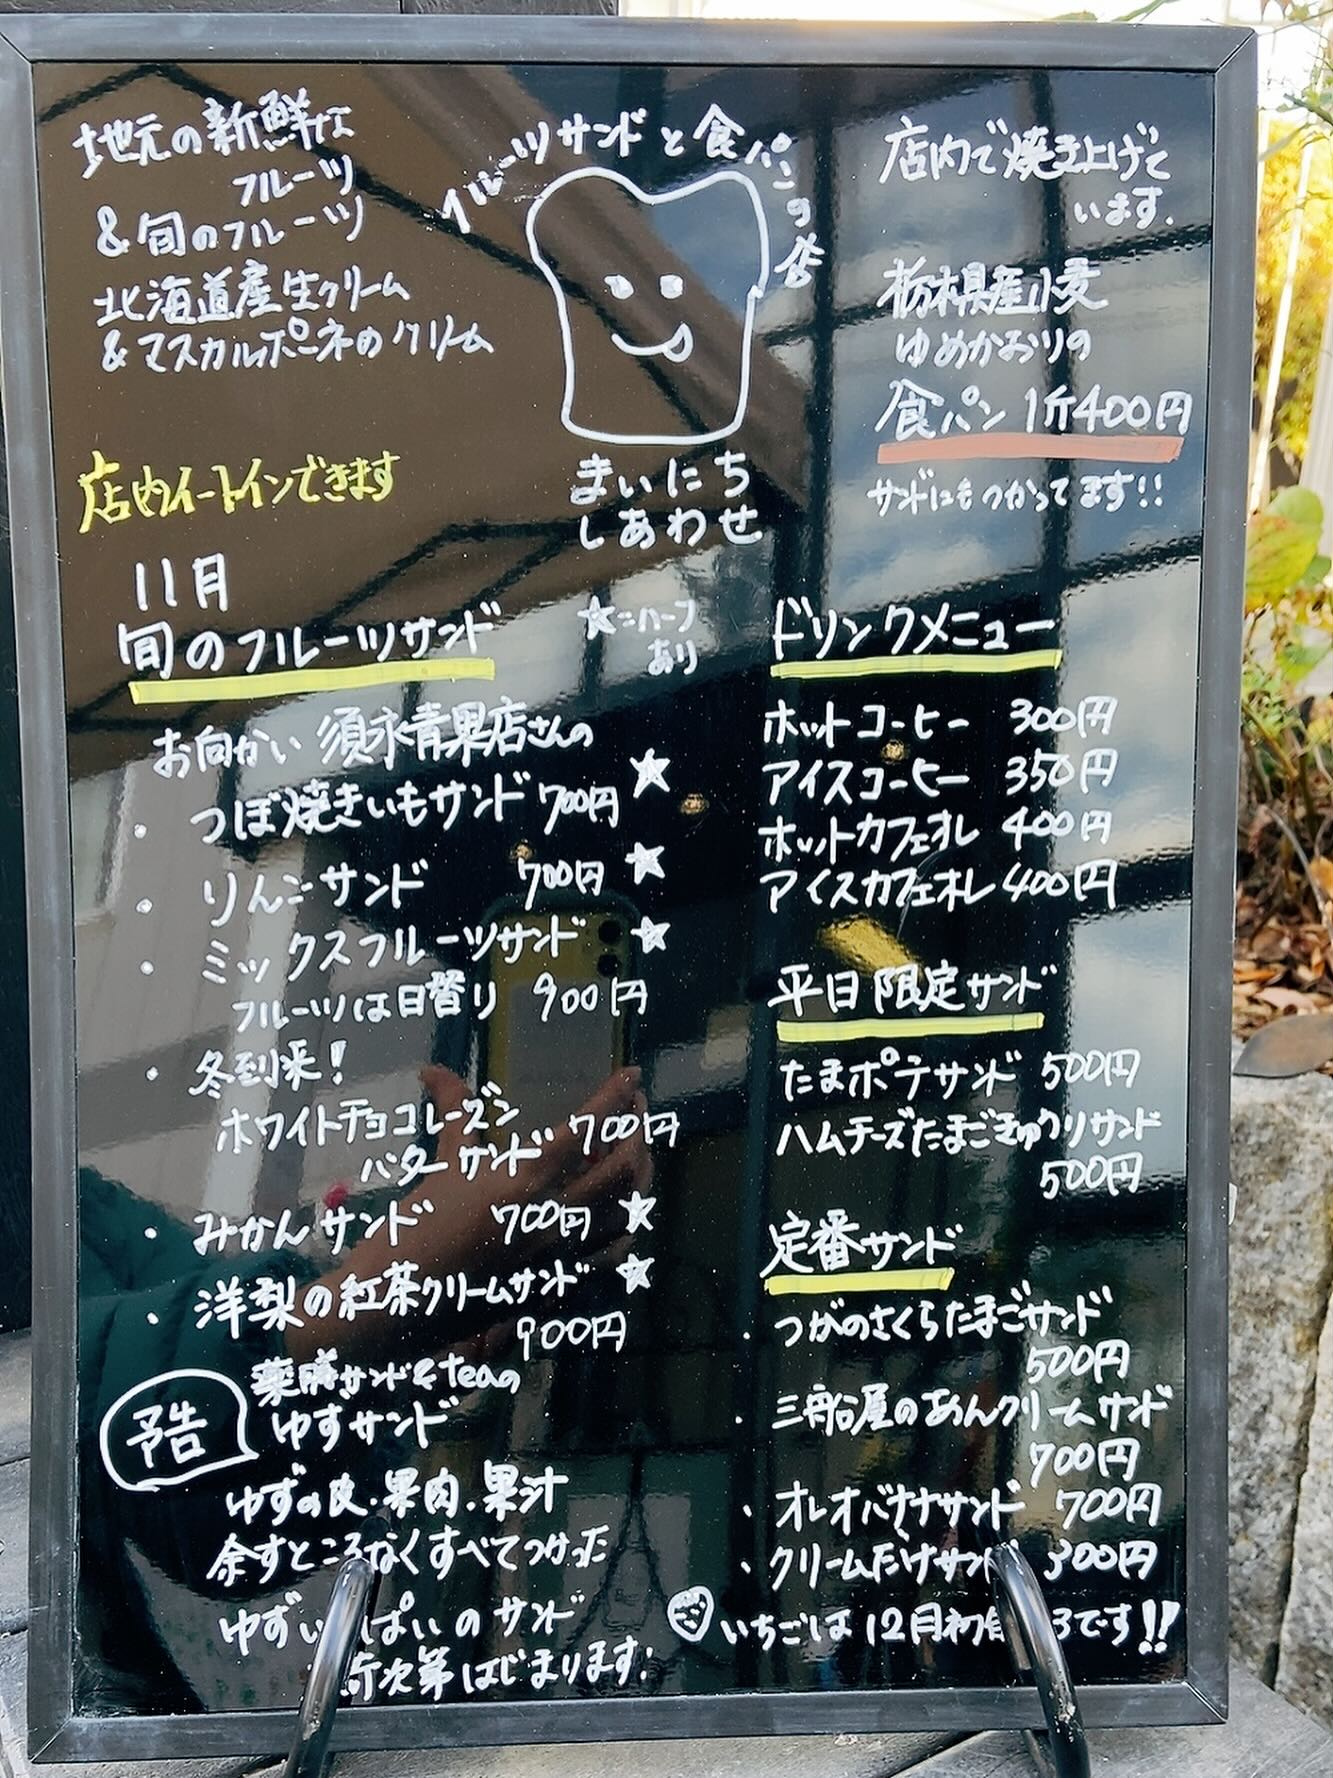 地元の新鮮な
フルーツ
&旬のフルーツ
北海道産生クリーム
&マスカルポーネのクリーム
フルーツサンドと食パンの店
まいにち
しあわせ
店内で焼き上げて
います.
栃木県産小麦
ゆめかおりの
食パン1斤400円
サンドにもつかってます!!
店内イートインできます
11月
旬のフルーツサンド
★=ハーフ
あり
お向かい 須永青果店さんの
・つぼ焼きいもサンド 700円 ★
・りんごサンド 700円 ★
・ミックスフルーツサンド ★
フルーツは日替り 900円
・冬到来!
ホワイトチョコレーズン
バターサンド 700円
・みかんサンド 700円 ★
・洋梨の紅茶クリームサンド ★
900円
予告
薬膳サンド&teaの
ゆずサンド
ゆずの皮.果肉.果汁
余すところなくすべてつかった
ゆずいっぱいのサンド
次第はじまります!
ドリンクメニュー
ホットコーヒー 300円
アイスコーヒー 350円
ホットカフェオレ 400円
アイスカフェオレ 400円
平日限定サンド
たまポテサンド 500円
ハムチーズたまごきゅうりサンド
500円
定番サンド
・つがのさくらたまごサンド
500円
・三船屋のあんクリームサンド
700円
・オレオバナナサンド 700円
・クリームだけサンド 300円
いちごは12月初旬ころです!!